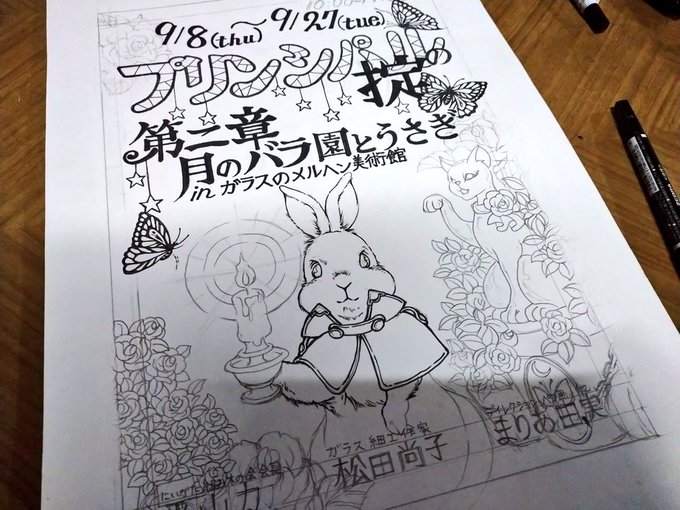 9/8(thu)〜9/27(tue)
プリンシパルの掟
第二章
月のバラ園とうさぎ
in ガラスのメルヘン美術館
ガラス細工作家
松田尚子
まりあ由実